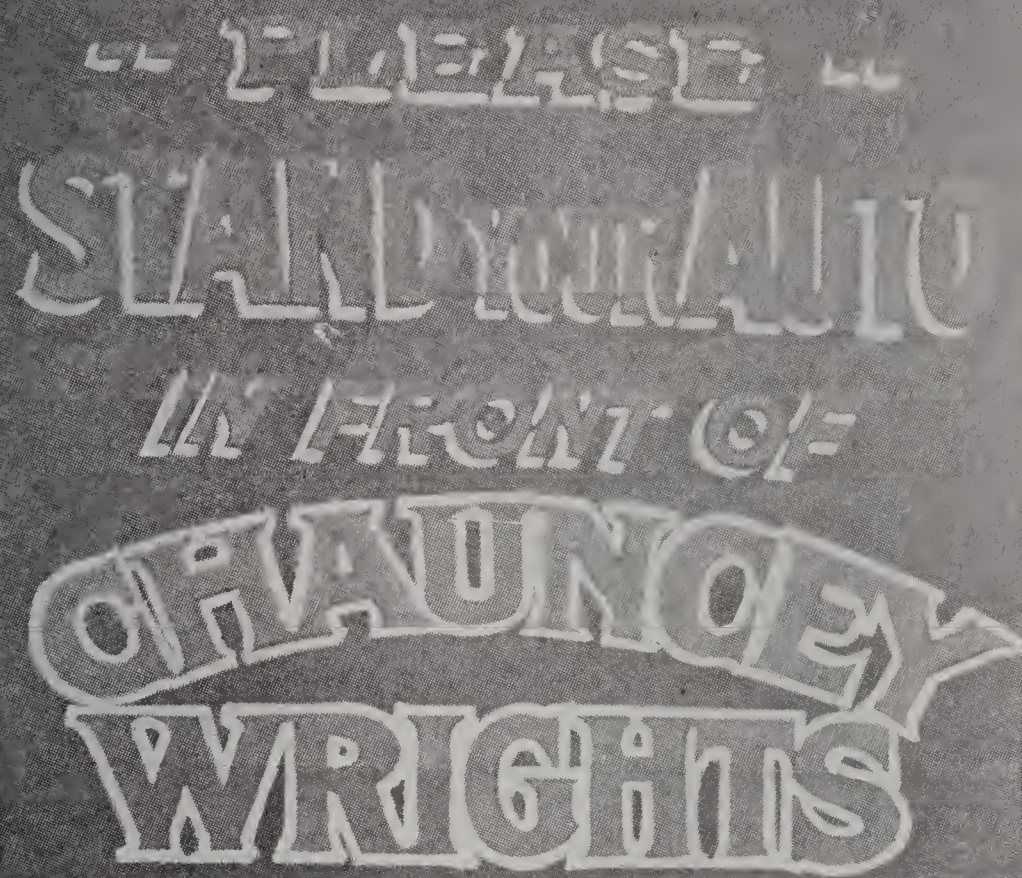 " PLEASE "
STAND your AUTO
IN FRONT OF
CHAUNCEY
WRIGHTS